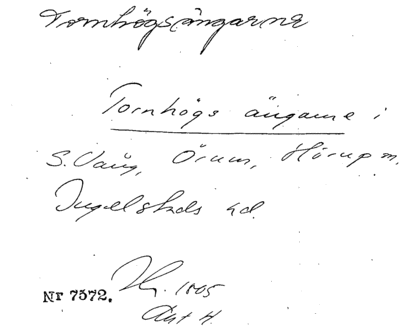 Tornhögsängarne
Tornhögs ängarne i
S. Vång, Örum, Hörup m.
Ingelstads hd.
Nr 7572.
1805
Akt 4.